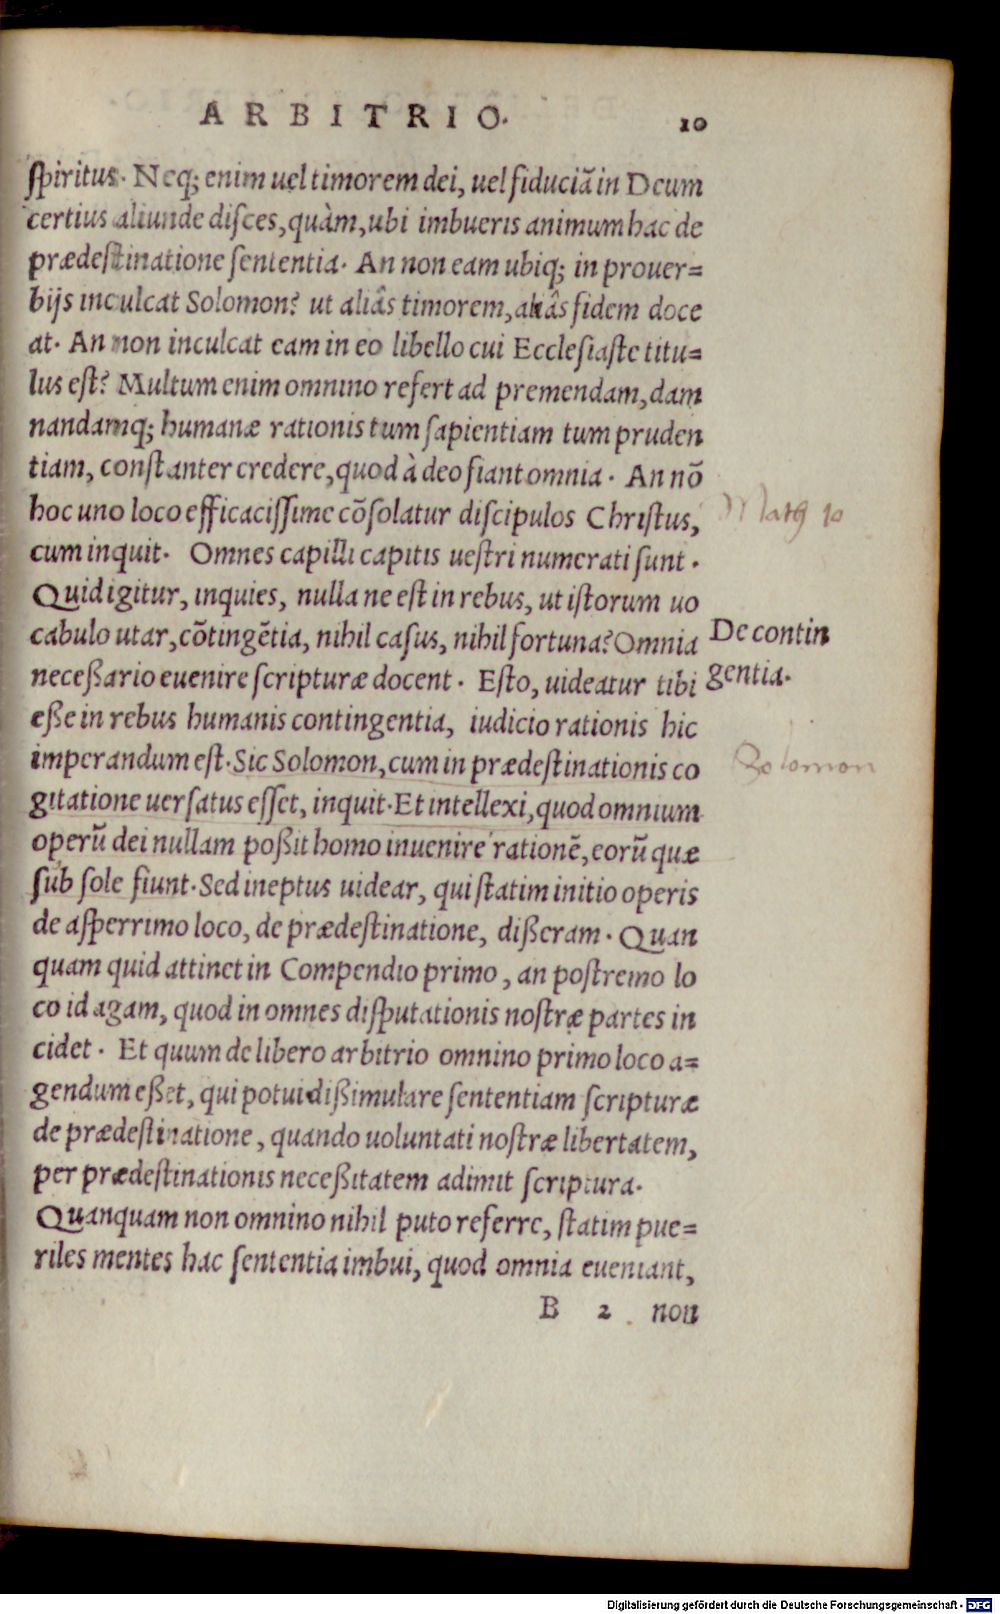 ARBITRIO. 10
spiritus. Neq; enim uel timorem dei, uel fiduciā in Deum
certius aliunde disces, quàm, ubi imbueris animum hac de
prædestinatione sententia. An non eam ubiq; in prouer=
bijs inculcat Solomon? ut aliâs timorem, aliâs fidem doce
at. An non inculcat eam in eo libello cui Ecclesiaste titu=
lus est? Multum enim omnino refert ad premendam, dam
nandamq; humanæ rationis tum sapientiam tum pruden
tiam, constanter credere, quod à deo fiant omnia. An nō
hoc uno loco efficacissime cōsolatur discipulos Christus,
Math 10
cum inquit. Omnes capilli capitis uestri numerati sunt.
Quid igitur, inquies, nulla ne est in rebus, ut istorum uo
cabulo utar, cōtingētia, nihil casus, nihil fortuna? Omnia
De contin
necessario euenire scripturæ docent. Esto, uideatur tibi
gentia.
esse in rebus humanis contingentia, iudicio rationis hic
imperandum est. Sic Solomon, cum in prædestinationis co
Solomon
gitatione uersatus esset, inquit. Et intellexi, quod omnium
operū dei nullam possit homo inuenire rationē, eorū quæ
sub sole fiunt. Sed ineptus uidear, qui statim initio operis
de asperrimo loco, de prædestinatione, disseram. Quan
quam quid attinet in Compendio primo, an postremo lo
co id agam, quod in omnes disputationis nostræ partes in
cidet. Et quum de libero arbitrio omnino primo loco a=
gendum esset, qui potui dissimulare sententiam scripturæ
de prædestinatione, quando uoluntati nostræ libertatem,
per prædestinationis necessitatem adimit scriptura.
Quanquam non omnino nihil puto referre, statim pue=
riles mentes hac sententia imbui, quod omnia eueniant,
B 2 non
Digitalisierung gefördert durch die Deutsche Forschungsgemeinschaft - DFG